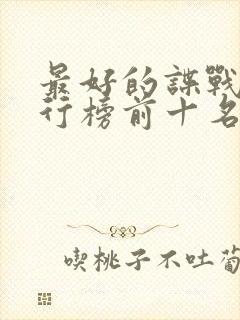 最好的諜戰
行榜前十名
喫桃子不吐葡